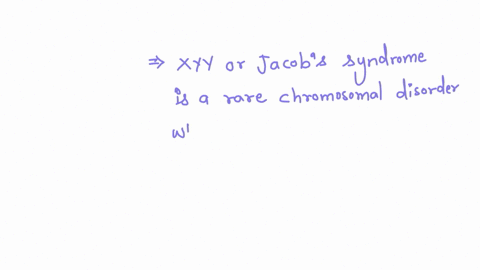 ⇒ XYY or Jacob's syndrome
is a rare chromosomal disorder